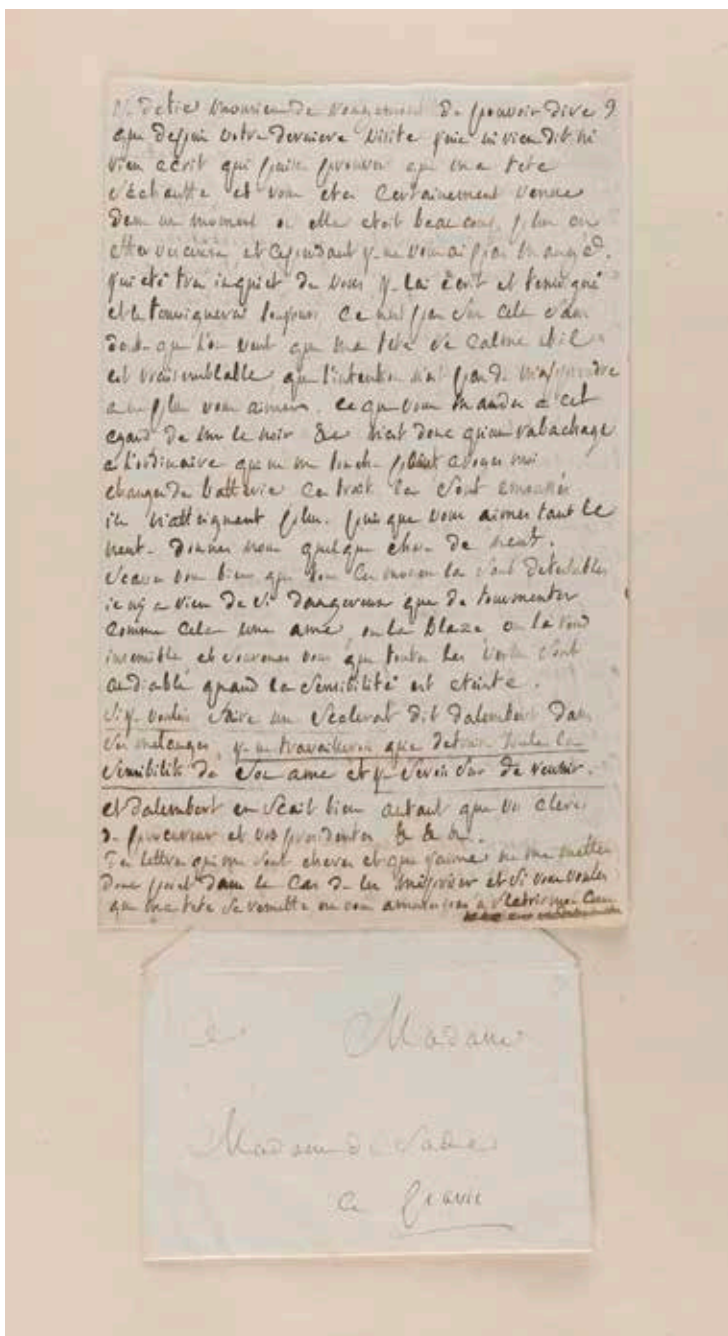 de pouvoir dire
que depuis votre derniere visite j'aie ni rien dit ni
rien ecrit qui puisse prouver que ma tete
s'echauffe et vous etes certainement venue
dans un moment ou elle etoit beaucoup plus en
effervescence et cependant je ne vous ai pas mangé.
j'ai été tres inquiet de vous je l'ai écrit et temoigné
et le temoignerai toujours ce n'est pas sur cela sans
doute que l'on veut que ma tete se calme et il
est vraisemblable que l'intention n'est pas de m'apprendre
a ne plus vous aimer. ce que vous mandez a cet
egard de mr le noir &c n'est donc qu'un rabachage
a l'ordinaire qui ne me touche point croyez moi
changez de batterie ces traits la sont emoussés
ils n'atteignent plus. puisque vous aimez tant le
neuf. donnez nous quelque chose de neuf.
scavez vous bien que tous ces moyens la sont detestables
il n'y a rien de si dangereux que de tourmenter
comme cela une ame, on la blaze, on la rend
insensible, et souvenez vous que toutes les vertus sont
au diable quand la sensibilité est eteinte.
si je voulois faire un scelerat dit dalembert dans
ses melanges, je ne travaillerois que detruire toute la
sensibilité de son ame et je serois sur de reussir.
et dalembert en scait bien autant que vos clercs
de procureur et vos presidentes & & &.
Tes lettres qui me sont cheres et que j'aime ne me mettez
donc point dans le cas de les mepriser et si vous voulez
que ma tete se remette ne vous amusez pas a
Madame
Madame de Sade
a Paris